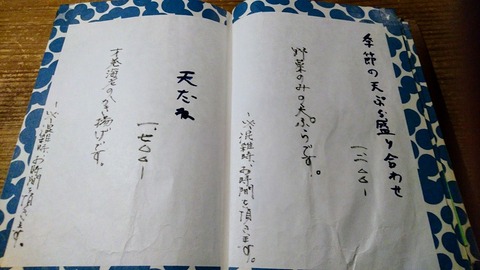 季節の天ぷら盛り合わせ
一、二〇〇ー
野菜のみの天ぷらです。
ー※混雑時、お時間を頂きます。ー
天たね
一、七〇〇ー
才巻海老のかき揚げです。
ー※混雑時、お時間を頂きます。